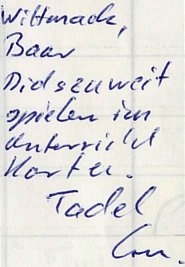 Wittmack,
Baar
Didszuweit
spielen im
Unterricht
Karten.
Tadel